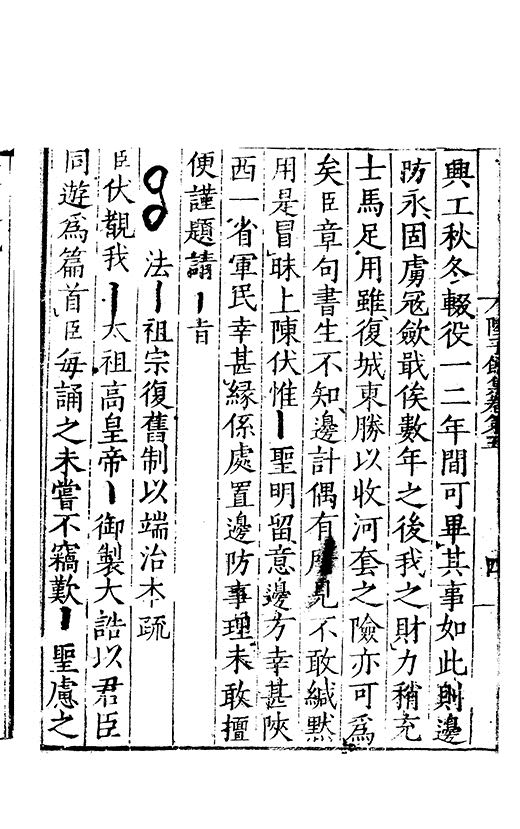 興工秋冬輟役一二年間可畢其事如此則邊
防永固虜寇斂戢俟數年之後我之財力稍充
士馬足用雖復城東勝以收河套之險亦可爲
矣臣章句書生不知邊計偶有見不敢緘默
用是冒昧上陳伏惟聖明留意邊方幸甚陝
西一省軍民幸甚緣係處置邊防事理未敢擅
便謹題請旨
法祖宗復舊制以端治本疏
臣伏覩我太祖高皇帝御製大誥以君臣
同遊爲篇首臣每誦之未嘗不竊歎聖慮之